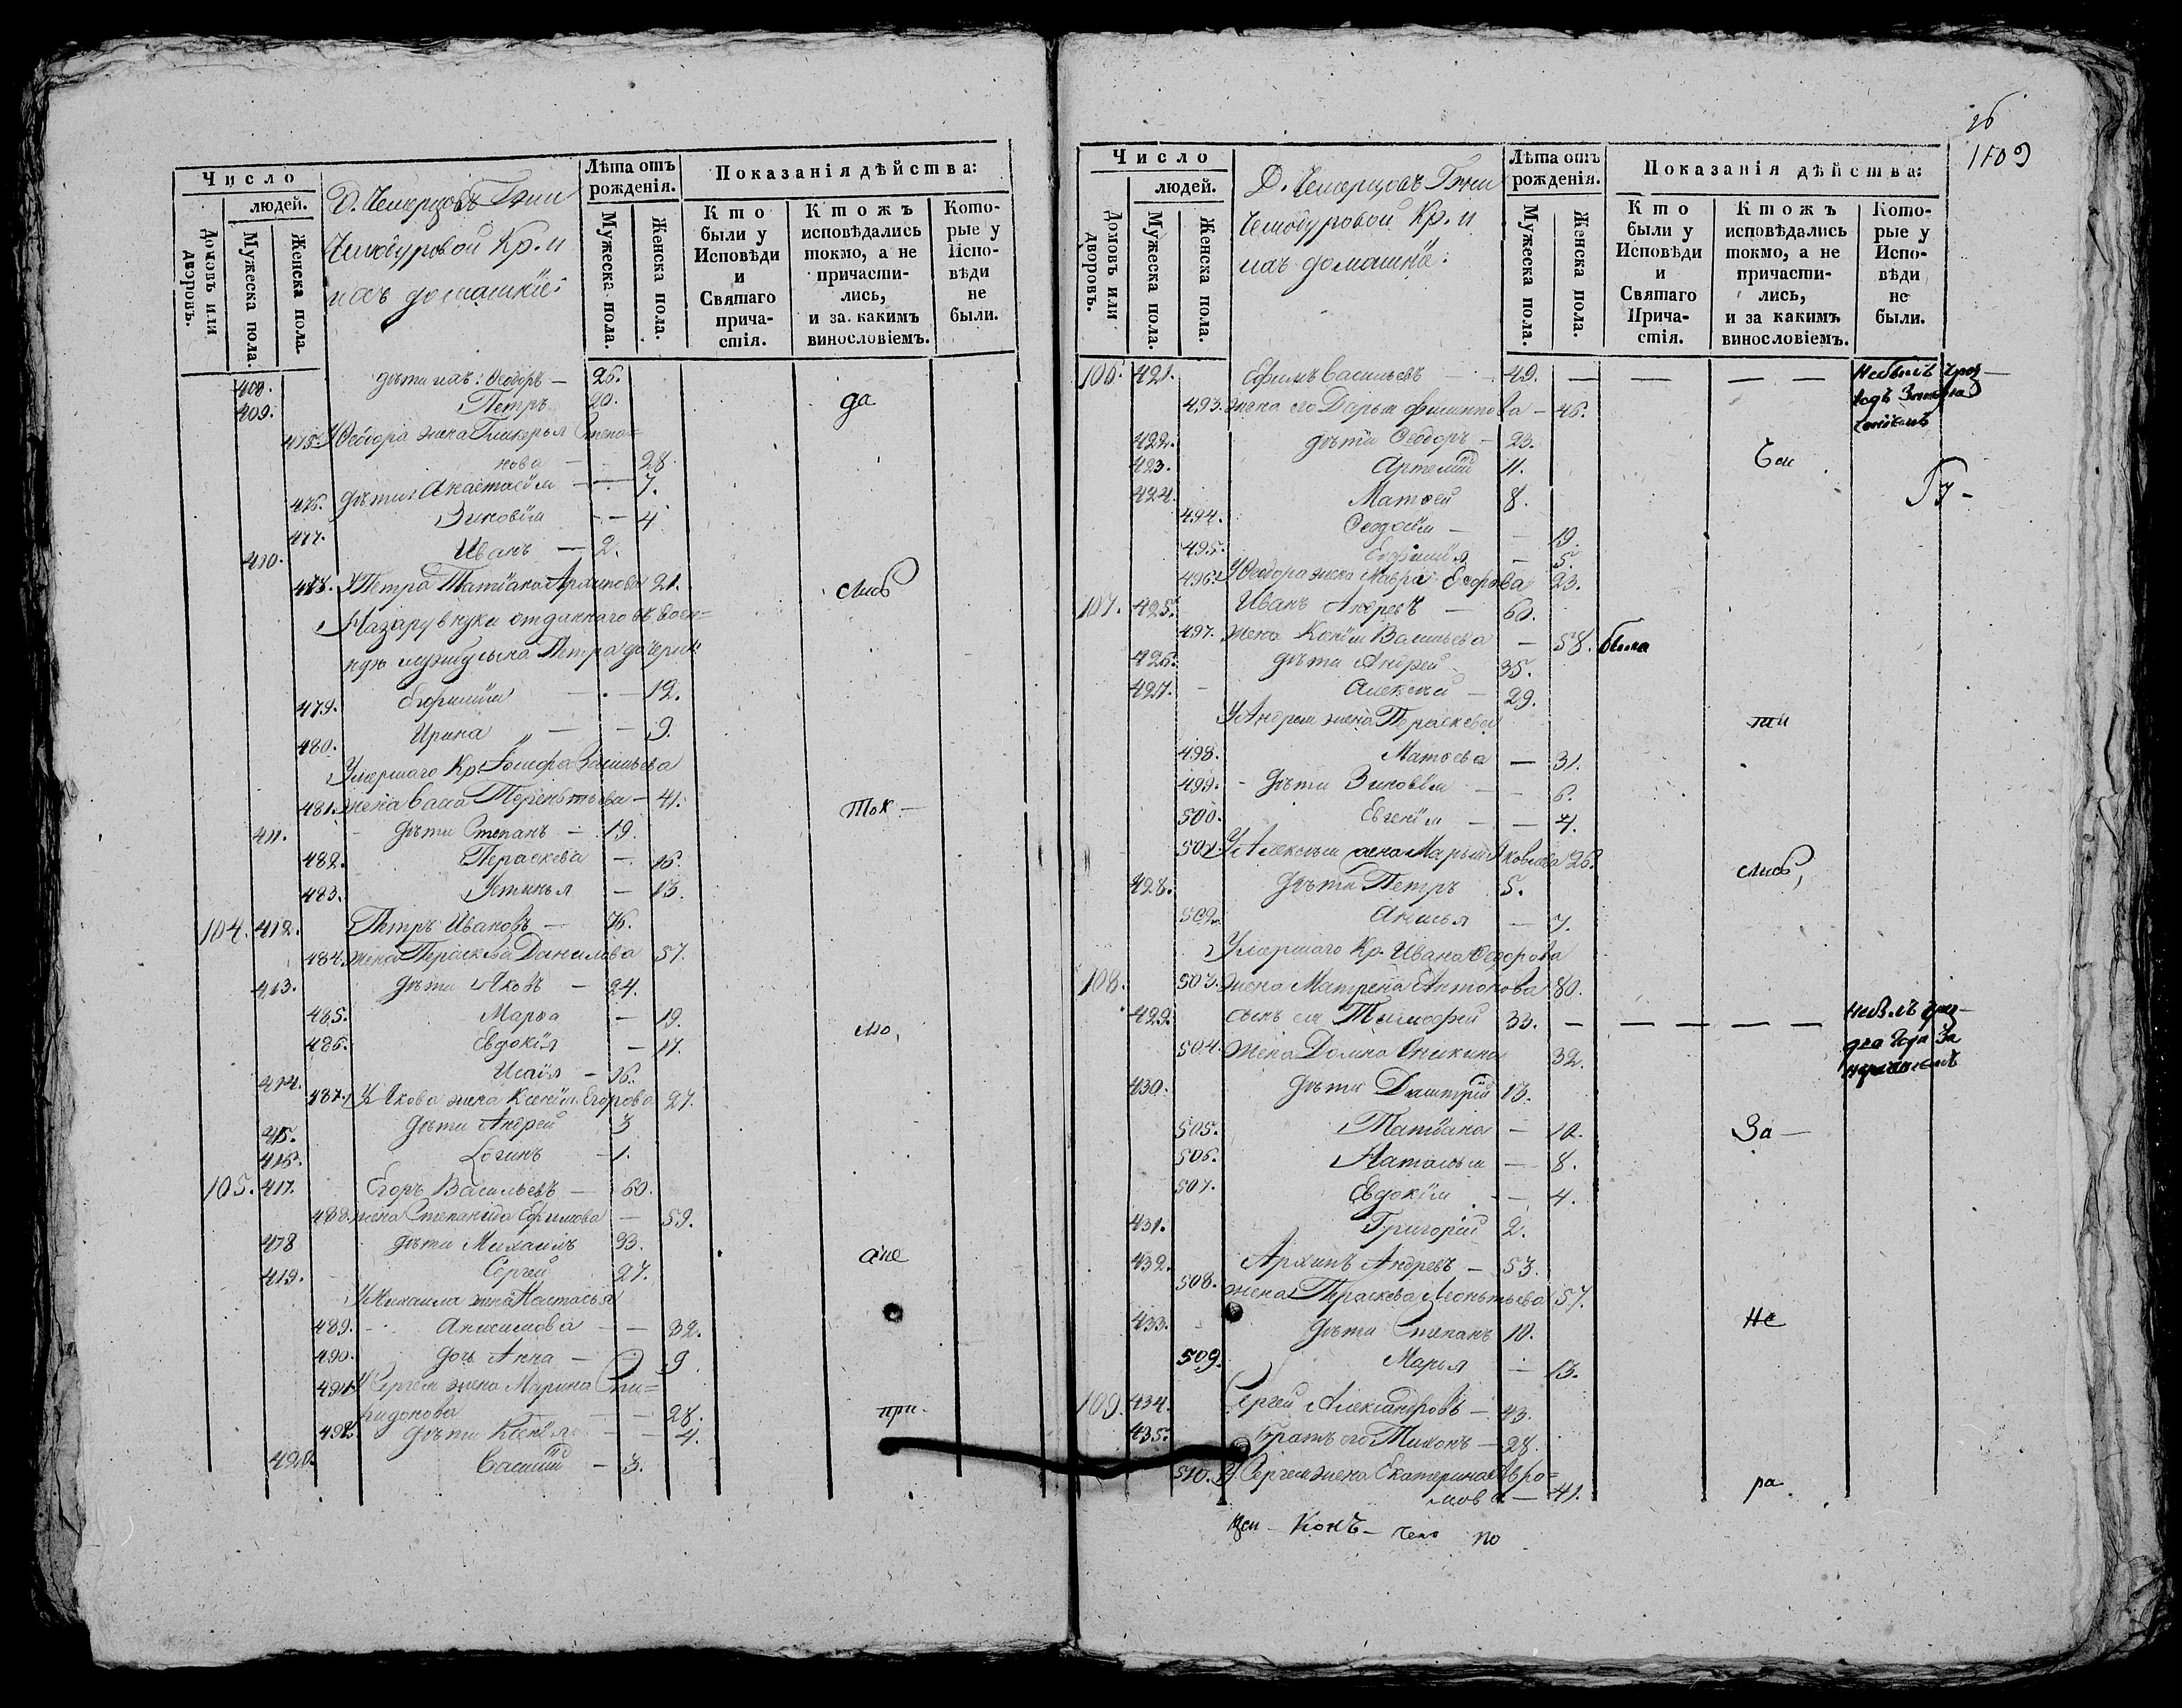 Число
людей.
Домовъ или дворовъ.
Мужеска пола.
Женска пола.
Д. Чемерцовъ Гжи
Чемодуровой Кр. и
ихъ домашнiи:
Лѣта отъ рожденія.
Мужеска пола.
Женска пола.
Показанія дѣйства:
Кто были у Исповѣди и Святаго прича-
стія.
Ктожъ исповѣдались токмо, а не причасти-
лись, и за какимъ винословіемъ.
Кото-
рые у Испо-
вѣди не были.
408. дѣти ихъ: Ѳеодоръ — 26.
409. Петръ 20. да
475. У Ѳеодора жена Гликерья Степа=
нова — 28.
476. дѣти: Анастасія — 7.
477. Зиновія — 4.
410. Иванъ — 2.
478. У Петра Татіана Архипова 21. лись
Назару внуки отданнаго въ воен=
ную службу сына Петра дочери:
479. Евфимія — 12.
480. Ирина — 9.
Умершаго Кр. Іосифа Васильева
481. жена Васса Терентьева — 41. ток —
411. дѣти Степанъ — 19.
482. Параскева — 16.
483. Устинья — 13.
104. 412. Петръ Ивановъ — 76.
484. жена Параскева Данилова 57.
413. дѣти Яковъ — 24.
485. Марѳа — 19. мо,
486. Евдокія — 17.
414. Исаія — 16.
487. У Якова жена Ксенія Егорова 27.
415. дѣти Андрей 3
416. Логинъ — 1.
105. 417. Егоръ Васильевъ — 60.
488. жена Степанида Ефимова — 59.
418 дѣти Михаилъ 33. а не
419. Сергей 27.
У Михаила жена Настасья
489. Анисимова — 32.
490. дочь Анна — 9.
491. У Сергея жена Марина Спи=
ридонова — 28. при-
492. дѣти Ксенія — 4.
420. Василій — 3.
26
1109
Число
людей.
Домовъ или дворовъ.
Мужеска пола.
Женска пола.
Д. Чемерцовъ Гжи
Чемодуровой Кр. и
ихъ домашніи:
Лѣта отъ рожденія.
Мужеска пола.
Женска пола.
Показанія дѣйства:
Кто были у Исповѣди и Святаго Прича-
стія.
Ктожъ исповѣдались токмо, а не причасти-
лись, и за какимъ винословіемъ.
Кото-
рые у Испо-
вѣди не были.
106. 421. Ефимъ Васильевъ — 49. — — — — Небылъ
493. жена его Дарья Филиппова — 46.
422. дѣти Ѳеодоръ — 23.
423. Артемій 11.
424. Матвей 8.
494. Ѳеодосія — 19.
495. Евфимія — 5.
496. У Ѳеодора жена Мавра Егорова 23.
107. 425. Иванъ Андревъ — 60.
497. жена Ксенія Васильева — 58. была
426. дѣти Андрей 35.
427. Алексѣй — 29.
У Андрея жена Параскева
498. Матвева — 31.
499. дѣти Зиновія — 6.
500. Евгенія — 4.
501. У Алексѣя жена Марья Яковлева 26. лись,
428. дѣти Петръ 5.
502. Анисья — 7.
Умершаго Кр. Ивана Ѳедорова
108. 503. жена Матрена Антонова 80.
429. сынъ ея Тимофей 33. — — — — — Небылъ
два года За
504. жена Домна Аникина 32.
430. дѣти Дмитрій 13.
505. Татіана — 12. За —
506. Наталья — 8.
507. Евдокія — 4.
431. Григорій 2.
432. Архипъ Андревъ — 53.
508. жена Параскева Леонтьева 57.
433. дѣти Степанъ 10. Не
509. Марья — 13.
109. 434. Сергей Александровъ — 43.
435. Братъ его Тихонъ — 28.
510. У Сергея жена Екатерина Авра=
мова — 41. ра